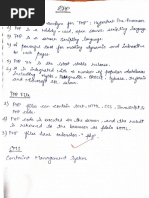 PHP
1) PHP is an acronym for "PHP: Hypertext Pre-Processor
2) PHP is a widely-used, open source scripting language
3) PHP is a server scripting language
4) A powerful tool for making dynamic and interactive
web pages.
5) PHP 7 is the latest stable release.
6) It is integrated with a number of popular databases
including MySQL, PostgreSQL, Oracle, Sybase, Informix
PHP file
1) PHP files can contain text, HTML, CSS, JavaScript &
PHP code.
2) PHP code is executed on the server, and the result is
returned to the browser as plain HTML.
3) PHP files have extension - ".php"
CMS
Content Management System